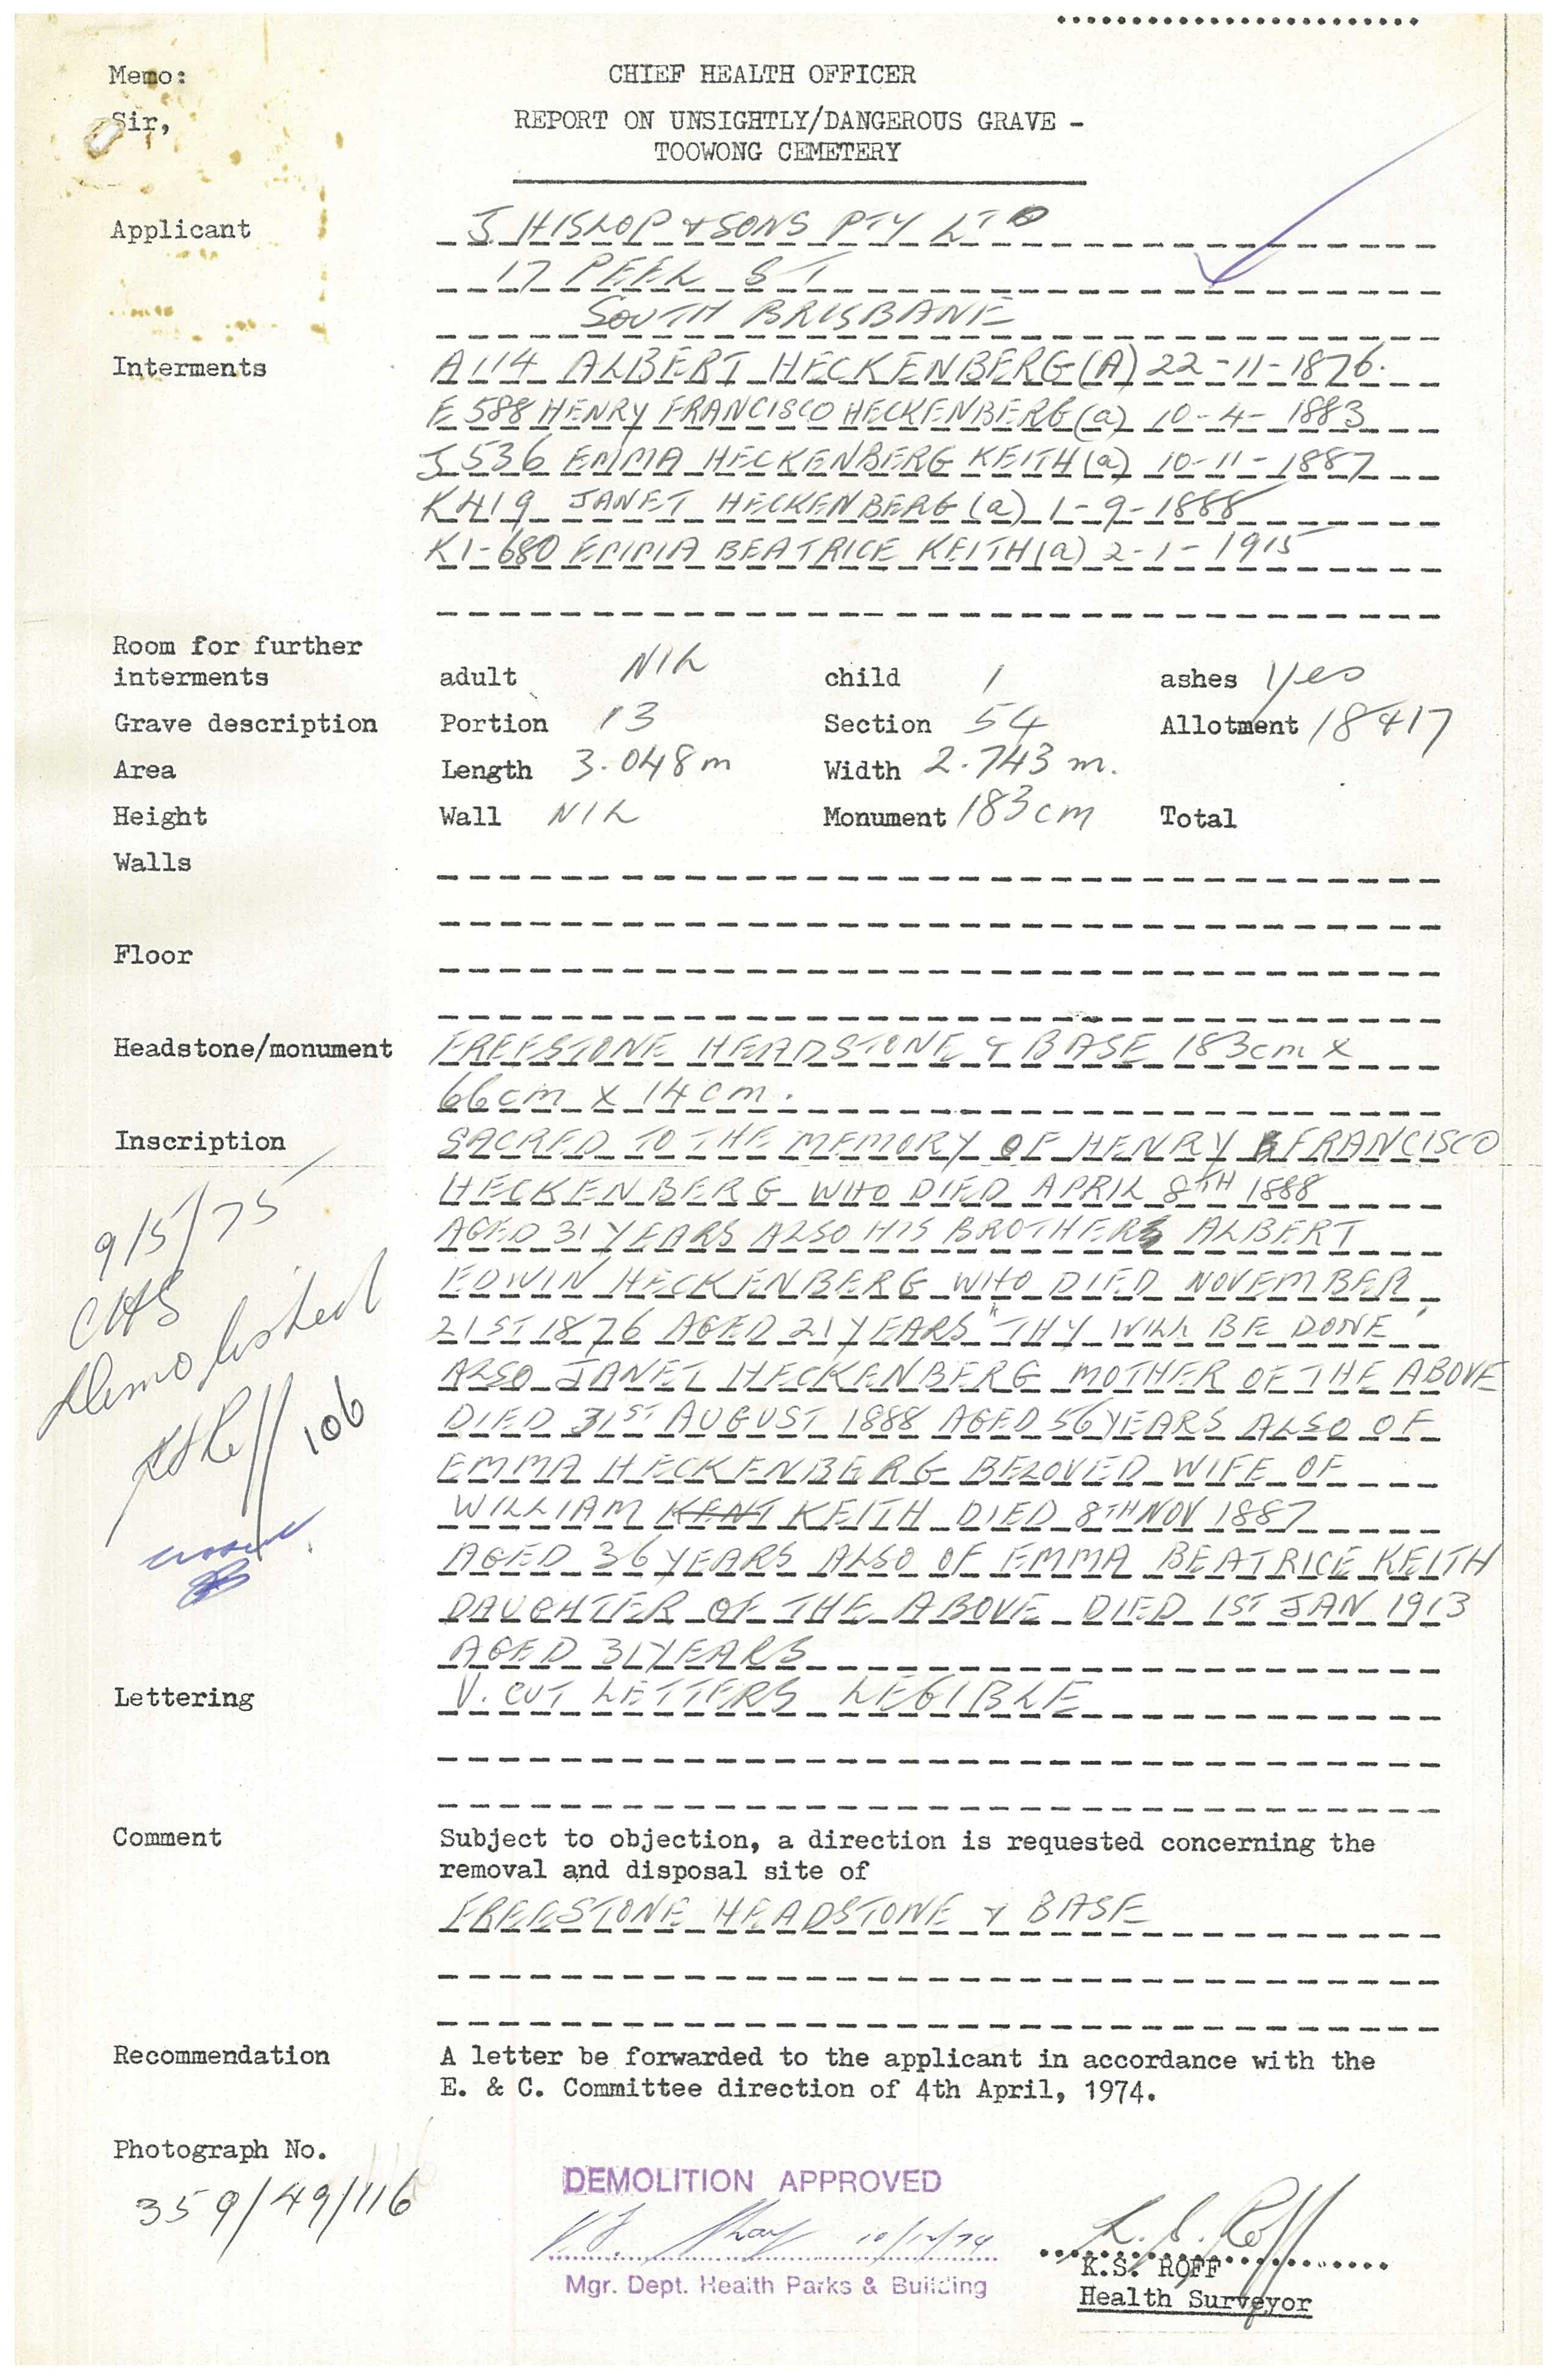 Memo:
CHIEF HEALTH OFFICER
Sir,
REPORT ON UNSIGHTLY/DANGEROUS GRAVE -
TOOWONG CEMETERY
Applicant J. HISLOP & SONS PTY LTD
17 PEEL ST
SOUTH BRISBANE
Interments A114 ALBERT HECKENBERG (A) 22-11-1876.
E588 HENRY FRANCISCO HECKENBERG (a) 10-4-1883
J536 EMMA HECKENBERG KEITH (a) 10-11-1887
K419 JANET HECKENBERG (a) 1-9-1888
K1-680 EMMA BEATRICE KEITH (a) 2-1-1915
Room for further
interments adult NIL child 1 ashes yes
Grave description Portion 13 Section 54 Allotment 18417
Area Length 3.048m Width 2.743 m.
Height Wall NIL Monument 183cm Total
Walls
Floor
Headstone/monument FREESTONE HEADSTONE & BASE 183cm X
66cm X 14cm.
Inscription SACRED TO THE MEMORY OF HENRY FRANCISCO
HECKENBERG WHO DIED APRIL 8TH 1888
AGED 31 YEARS ALSO HIS BROTHER ALBERT
EDWIN HECKENBERG WHO DIED NOVEMBER
21ST 1876 AGED 21 YEARS "THY WILL BE DONE"
ALSO JANET HECKENBERG MOTHER OF THE ABOVE
DIED 31ST AUGUST 1888 AGED 56 YEARS ALSO OF
EMMA HECKENBERG BELOVED WIFE OF
WILLIAM KENT KEITH DIED 8TH NOV 1887
AGED 36 YEARS ALSO OF EMMA BEATRICE KEITH
DAUGHTER OF THE ABOVE DIED 1ST JAN 1913
AGED 31 YEARS
9/5/75
CHS
Demolished
KSRoff
106
Lettering V. CUT LETTERS LEGIBLE
Comment Subject to objection, a direction is requested concerning the
removal and disposal site of
FREESTONE HEADSTONE & BASE
Recommendation A letter be forwarded to the applicant in accordance with the
E. & C. Committee direction of 4th April, 1974.
Photograph No.
359/49/116
DEMOLITION APPROVED
10/12/74
Mgr. Dept. Health Parks & Building
K. S. Roff
K.S. ROFF
Health Surveyor